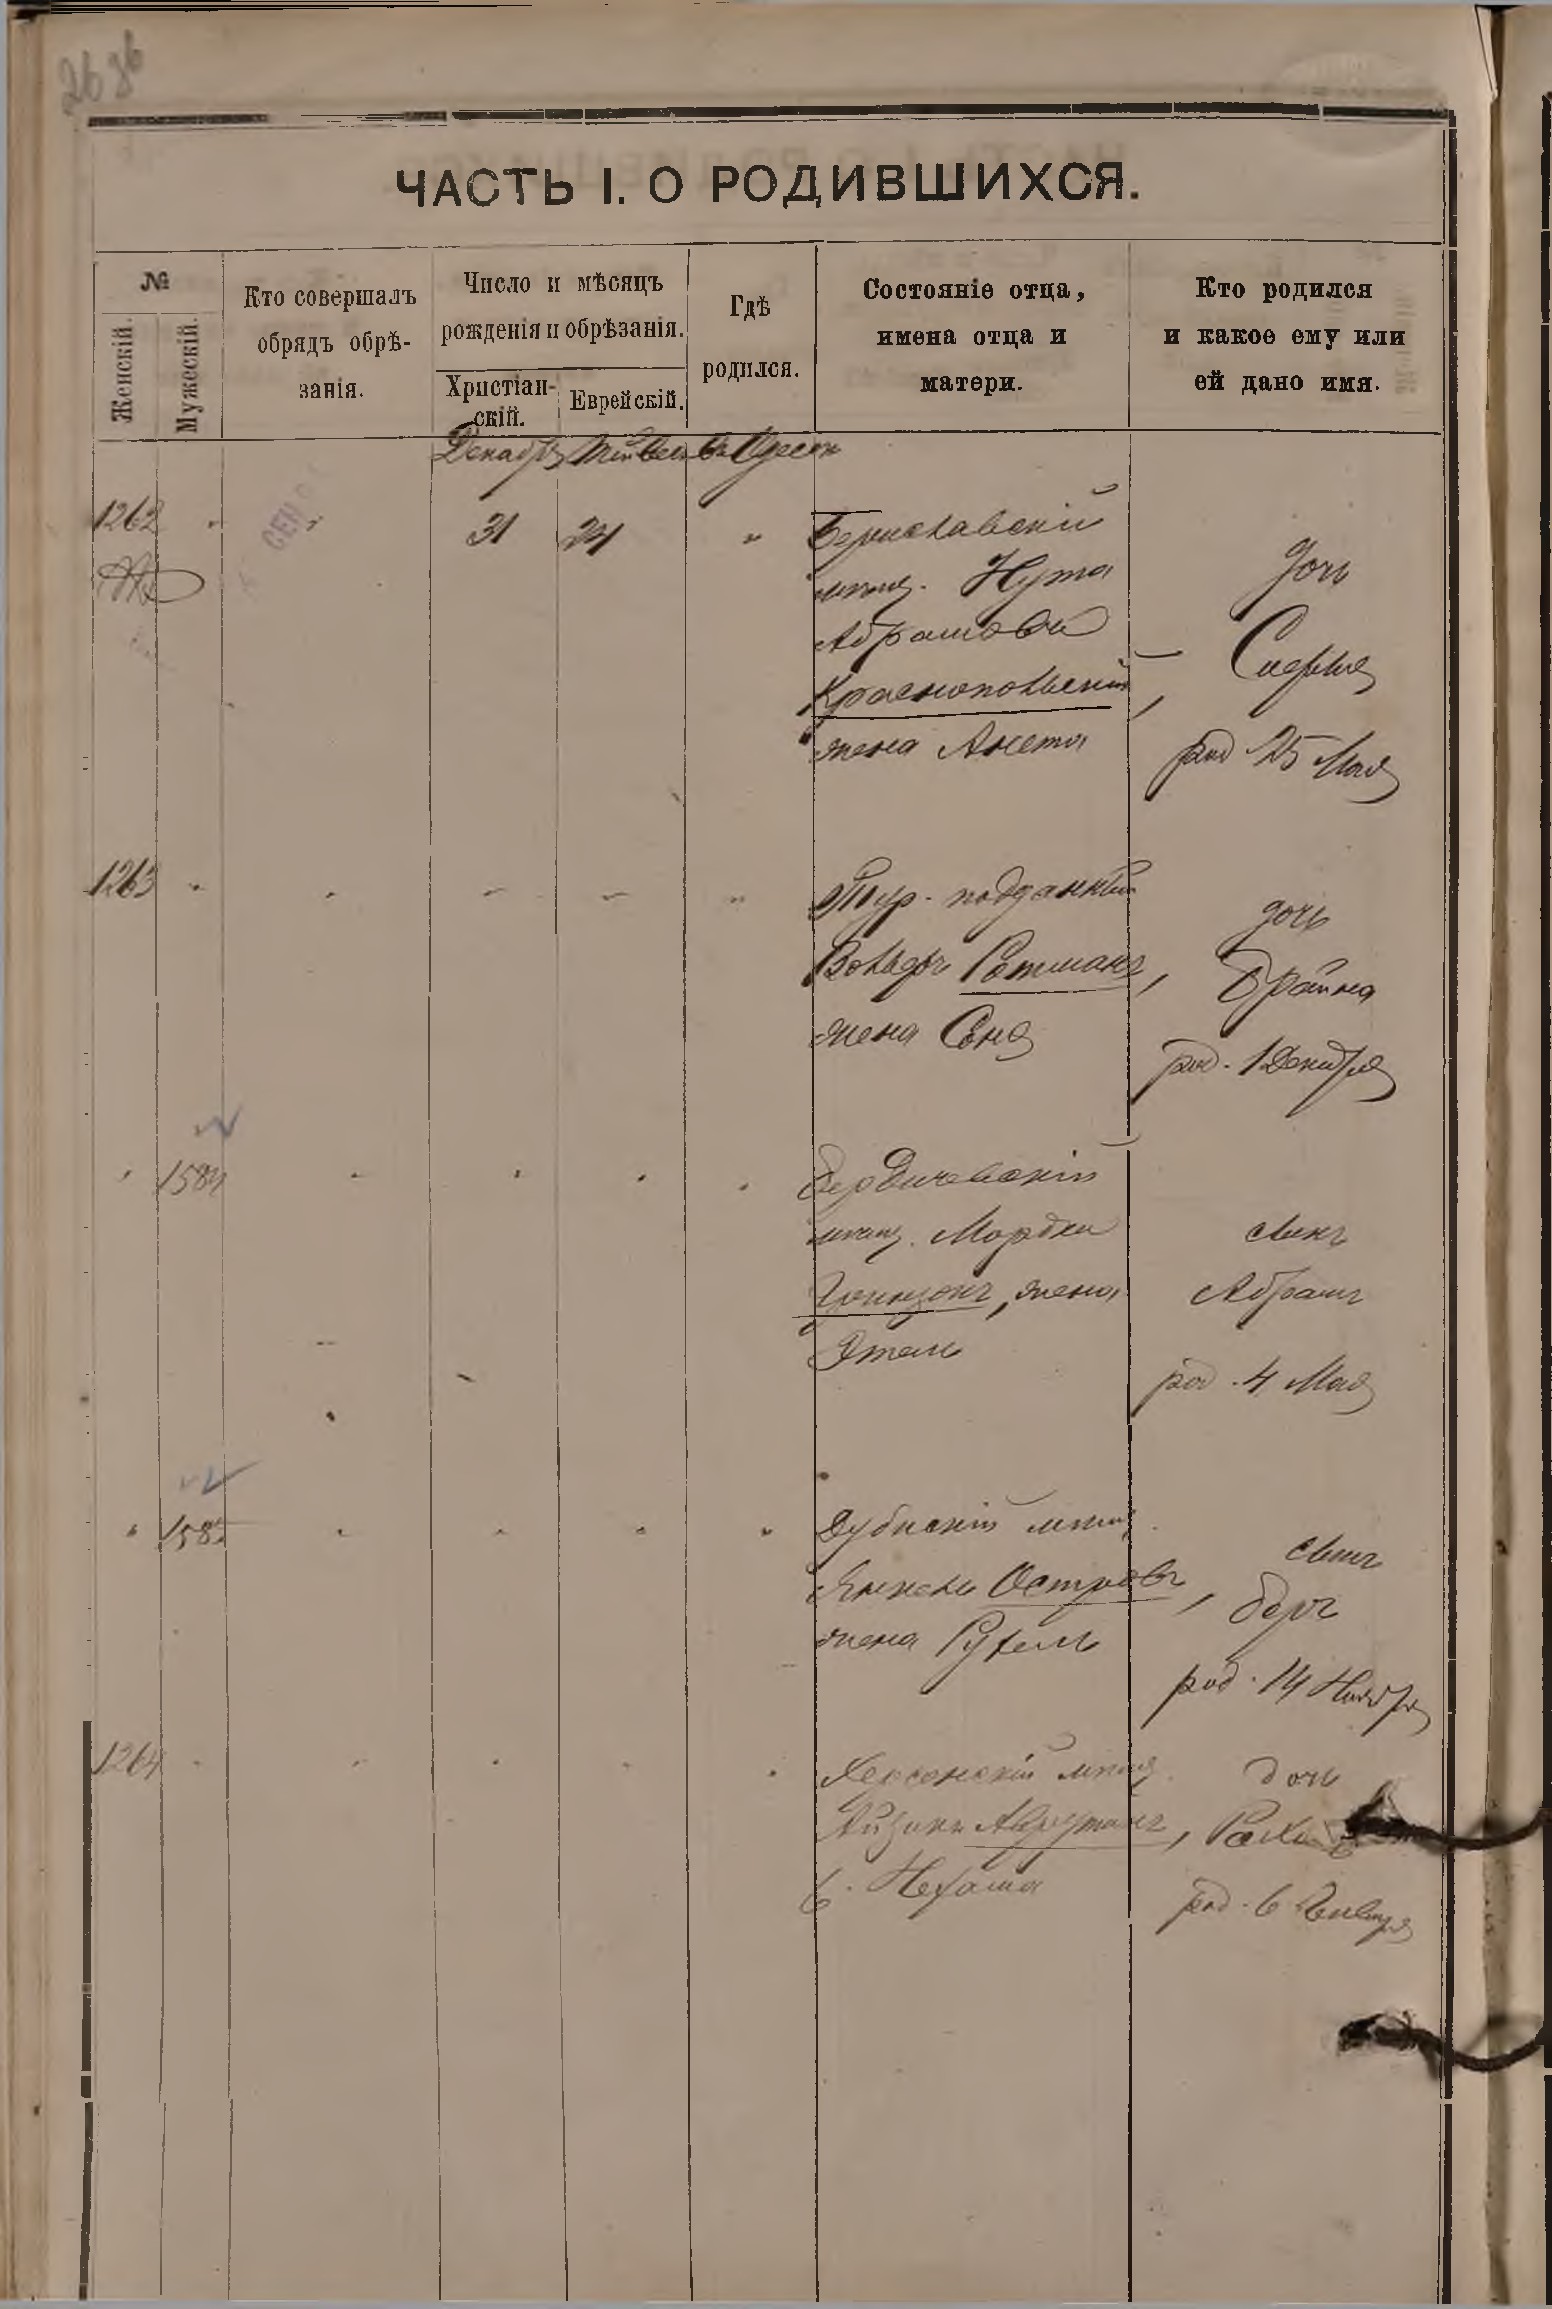 ЧАСТЬ I. О РОДИВШИХСЯ.
№
Женскій.
Мужескій.
Кто совершалъ
обрядъ обрѣ-
занія.
Число и мѣсяцъ
рожденія и обрѣзанія.
Христіан-
скій.
Еврейскій.
Гдѣ
родился.
Состояніе отца,
имена отца и
матери.
Кто родился
и какое ему или
ей дано имя.
въ Одессѣ
1262 31 24
Бериславскій
мѣщ. Нута
Абрамовъ
Краснопольскій,
жена Анета
дочь
Софья
род 25 Мая
1263
Тур. подданный
Вольфъ Ротманъ,
жена Соня
дочь
Брайна
род. 1 Декабря
1584
Бердичевскій
мѣщ. Мордко
жена
Этель
сынъ
Абрамъ
род. 4 Мая
1585
Дубнскій мѣщ.
Янкель Островъ,
жена Рухель
сынъ
Беръ
род. 14 Ноября
1264
Херсонскій мѣщ.
Айзикъ Аврутинъ,
ж. Нехама
дочь
род. 6 Января